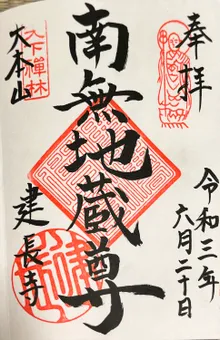 奉拝
令和三年
六月二十日
南無地蔵尊
天下禅林
大本山
建長寺